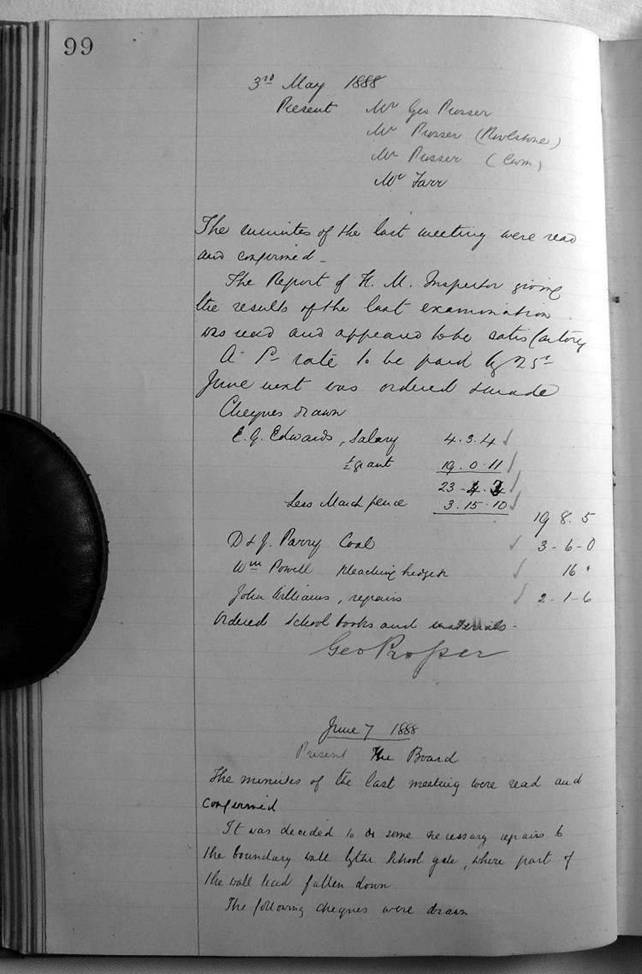 99
3rd May 1888
Present Mr Geo Prosser
Mr Prosser (Rowlstone)
Mr Prosser (Cwm)
Mr Farr
The minutes of the last meeting were read
and confirmed -
The Report of H. M. Inspector giving
the results of the last examination
was read and appeared to be satisfactory
A rate to be paid by 25th
June next was ordered
Cheques drawn
E. G. Edwards, Salary 4. 3. 4
¼ grant 19. 0. 11
23. 4. 3
Less March pence 3. 15. 10
19 8. 5
D & J. Parry Coal 3 - 6 - 0
Wm Powell Pleaching hedges 16
John Williams, repairs 2 - 1 - 6
Ordered School books and materials -
Geo Prosser
June 7 1888
Present The Board
The minutes of the last meeting were read and
confirmed
It was decided to do some necessary repairs to
the boundary wall by the School gate, where part of
the wall had fallen down
The following cheques were drawn